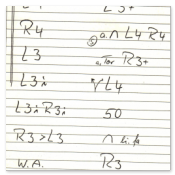 L3+
R4
a.∩ L4 R4
L3
a, for R3+
L3i
L4
L3i R3i
50
R3 > L3
∩
W.A.
R3